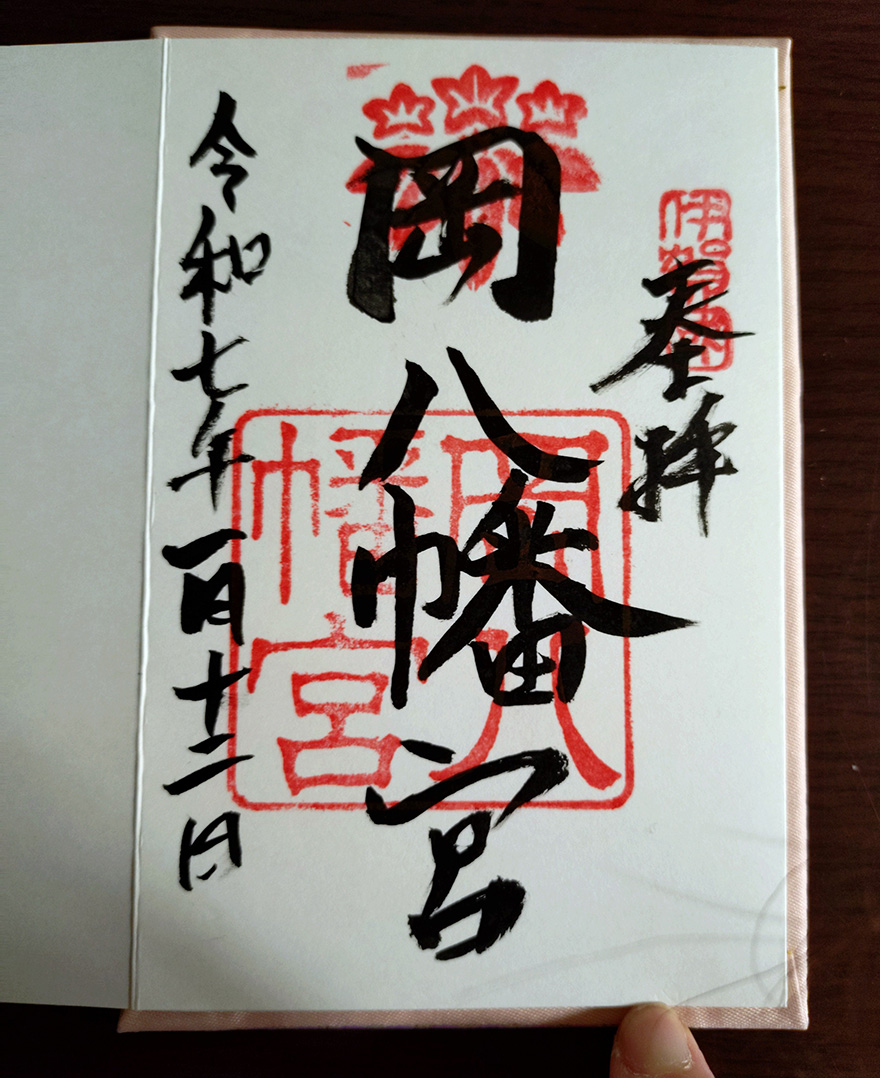 伊賀
奉拝
岡八幡宮
岡八
幡宮
令和七年一月十二日